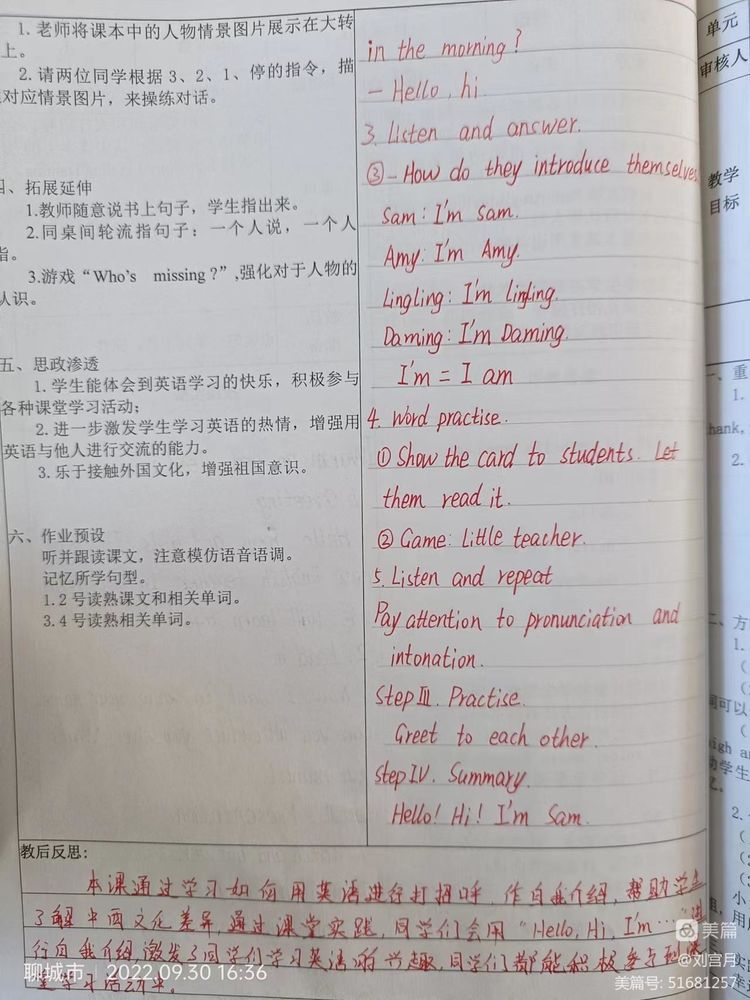 1. 老师将课本中的人物情景图片展示在大转
上。
2. 请两位同学根据 3、2、1、停的指令，描
对应情景图片，来操练对话。
四、拓展延伸
1.教师随意说书上句子，学生指出来。
2.同桌间轮流指句子：一个人说，一个人
指。
3.游戏“Who's missing?”,强化对于人物的
认识。
五、思政渗透
1. 学生能体会到英语学习的快乐，积极参与
各种课堂学习活动；
2. 进一步激发学生学习英语的热情，增强用
英语与他人进行交流的能力。
3. 乐于接触外国文化，增强祖国意识。
六、作业预设
听并跟读课文，注意模仿语音语调。
记忆所学句型。
1.2 号读熟课文和相关单词。
3.4 号读熟相关单词。
in the morning?
- Hello, hi
3. Listen and answer.
③ - How do they introduce themselves
Sam: I'm Sam.
Amy: I'm Amy.
Lingling: I'm lingling.
Daming: I'm Daming.
I'm = I am
4. Word practise.
① Show the card to students. Let
them read it.
② Game: Little teacher.
5. Listen and repeat
Pay attention to pronunciation and
intonation.
Step III. Practise.
Greet to each other.
Step IV. Summary.
Hello! Hi! I'm Sam.
教后反思:
本课通过学习如何用英语进行打招呼，作自我介绍，帮助学生
了解中西文化差异，通过课堂实践，同学们会用“Hello, Hi, I'm……”进
行自我介绍,激发了同学们学习英语的兴趣,同学们都能积极参与到课
堂学习活动中。
单元
审核人
教学
目标
一、重
1.
hank,
2.
二、方
1.
(
(
司可以
(
igh an
力学生
忆。
2.
(
(
小
组，用
聊城市 | 2022.09.30 16:36
美篇
@刘宫月
美篇号: 51681257